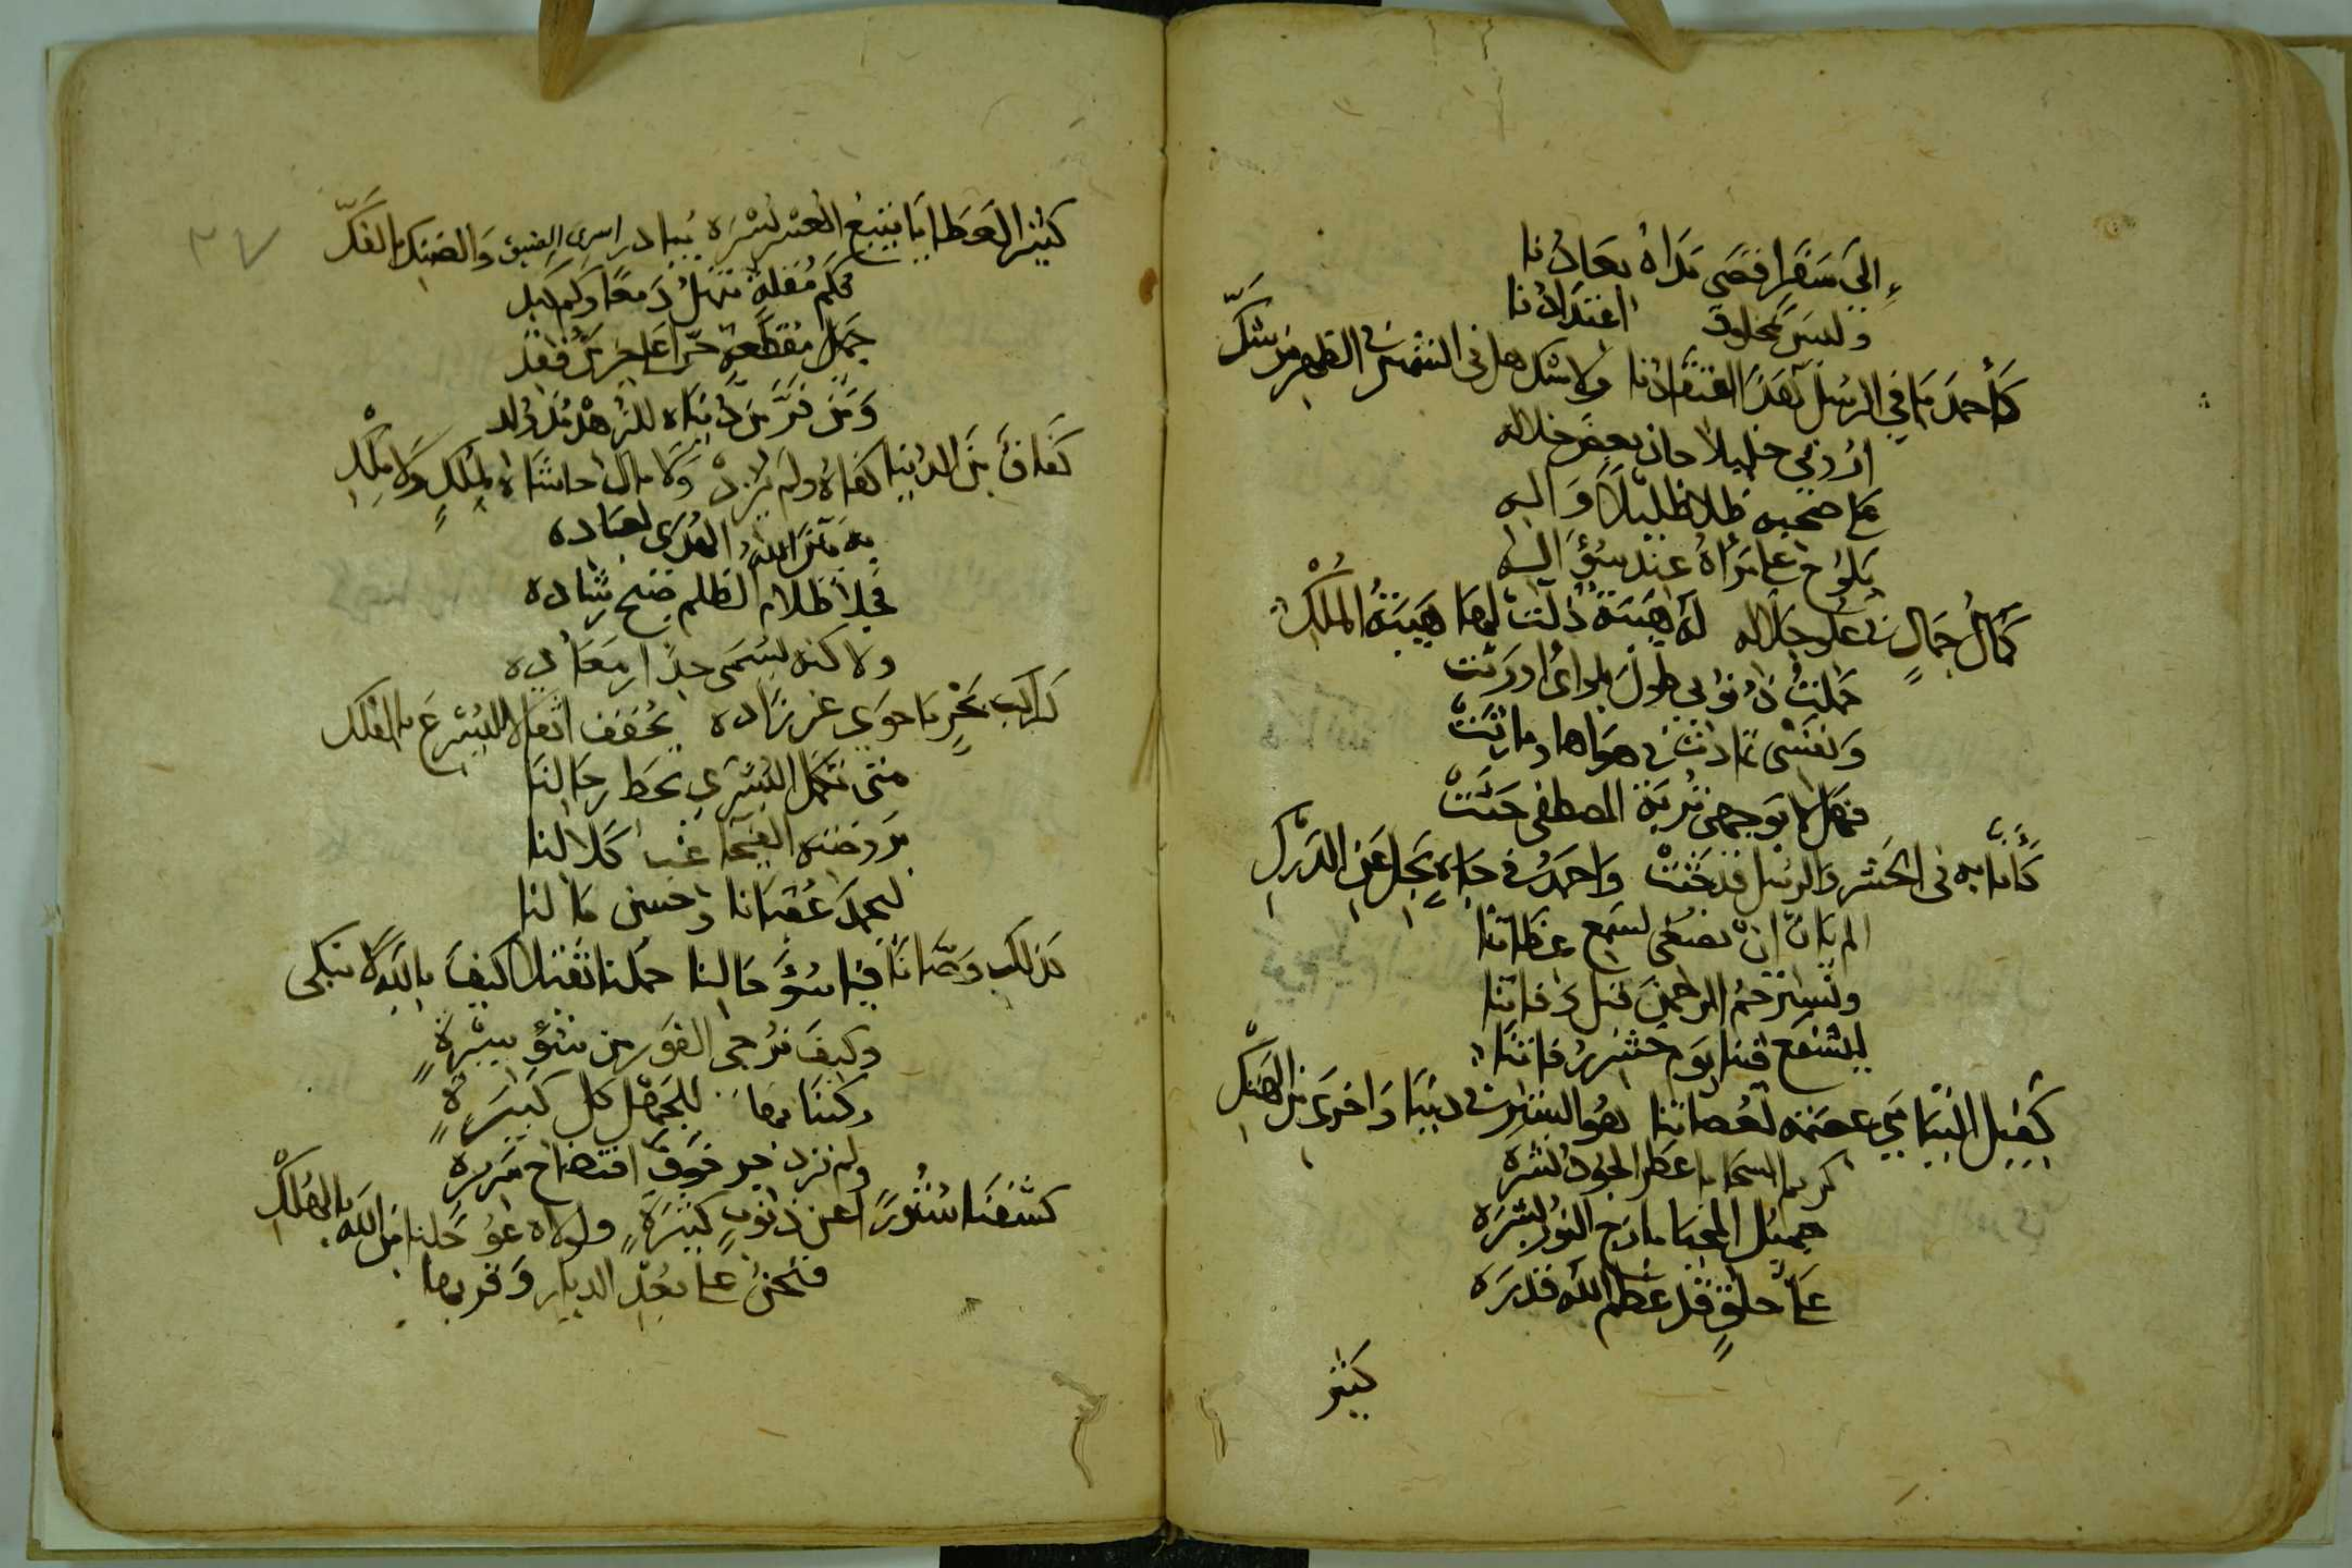 إلى سقر أفضى مداه بعادنا
وليس بمخلوق اعتدادنا
كأحمد ما في الرسل هذا اعتقادنا ولا شك هل في الشمس في الظهر من شك
أروني خليلا حاز بعض خلاله
كما صحبه ظلا ظليلا وآله
يلوح على مرآه عند سؤاله
كمال جمال في علو جلاله له هيبة ذلت لها هيبة الملك
حملت ذنوبي طول بلواي أورثت
ونفسي تمادت في هواها وما رثت
فهل لا بوجهي تربة المصطفى حثت
كأنا به في الحشر والرسل قد جثت وأحمد في جاه يجل عن الدرك
ألم يأن أن نصغي لسمع عظاتنا
ونسترحم الرحمن قبل وفاتنا
ليشفع فينا يوم حشر رفاتنا
كفيل النبيا في عصمة لعصاتنا هو الستر في دنيا وأخرى من الهتك
كريم السجايا عطر الجود نشره
جميل المحيا مازج النور بشره
على خلق قد عظم الله قدره
كثير
كثير العطايا يتبع العسر يسره يبادر أسرى الضيق والضنك بالفك
٣٧
فكم مقلة تنهل دمعا وكم كبد
جمال مقطعة حرا على حر فقد
ومن فر من دنياه للزهد مذ ولد
كفاف من الدنيا كفاه ولم يزد ولا مال حاشاه لملك ولا ملك
به من الله الهدى لعباده
فجلا ظلام الظلم صبح رشاده
ولا كنه يسمى جدار معاده
كراكب بحر ما حوى غير زاده يخفف أثقالا ليسرع بالفلك
متى تكمل البشرى بحط رحالنا
بروضته الفيحا غب كلالنا
ليحمد عقبانا وحسن مآلنا
كذلك وصانا فيا سوء حالنا حملنا ثقالا كيف بالله لا نبكي
وكيف نرجي الفوز من سوء سيرة
ركبنا بها للجهل كل كبيرة
ولم نزدجر خوف افتضاح سريرة
كشفنا ستورا عن ذنوب كثيرة ولولاه عوجلنا من الله بالهلك
فنحن على بعد الديار وقربها